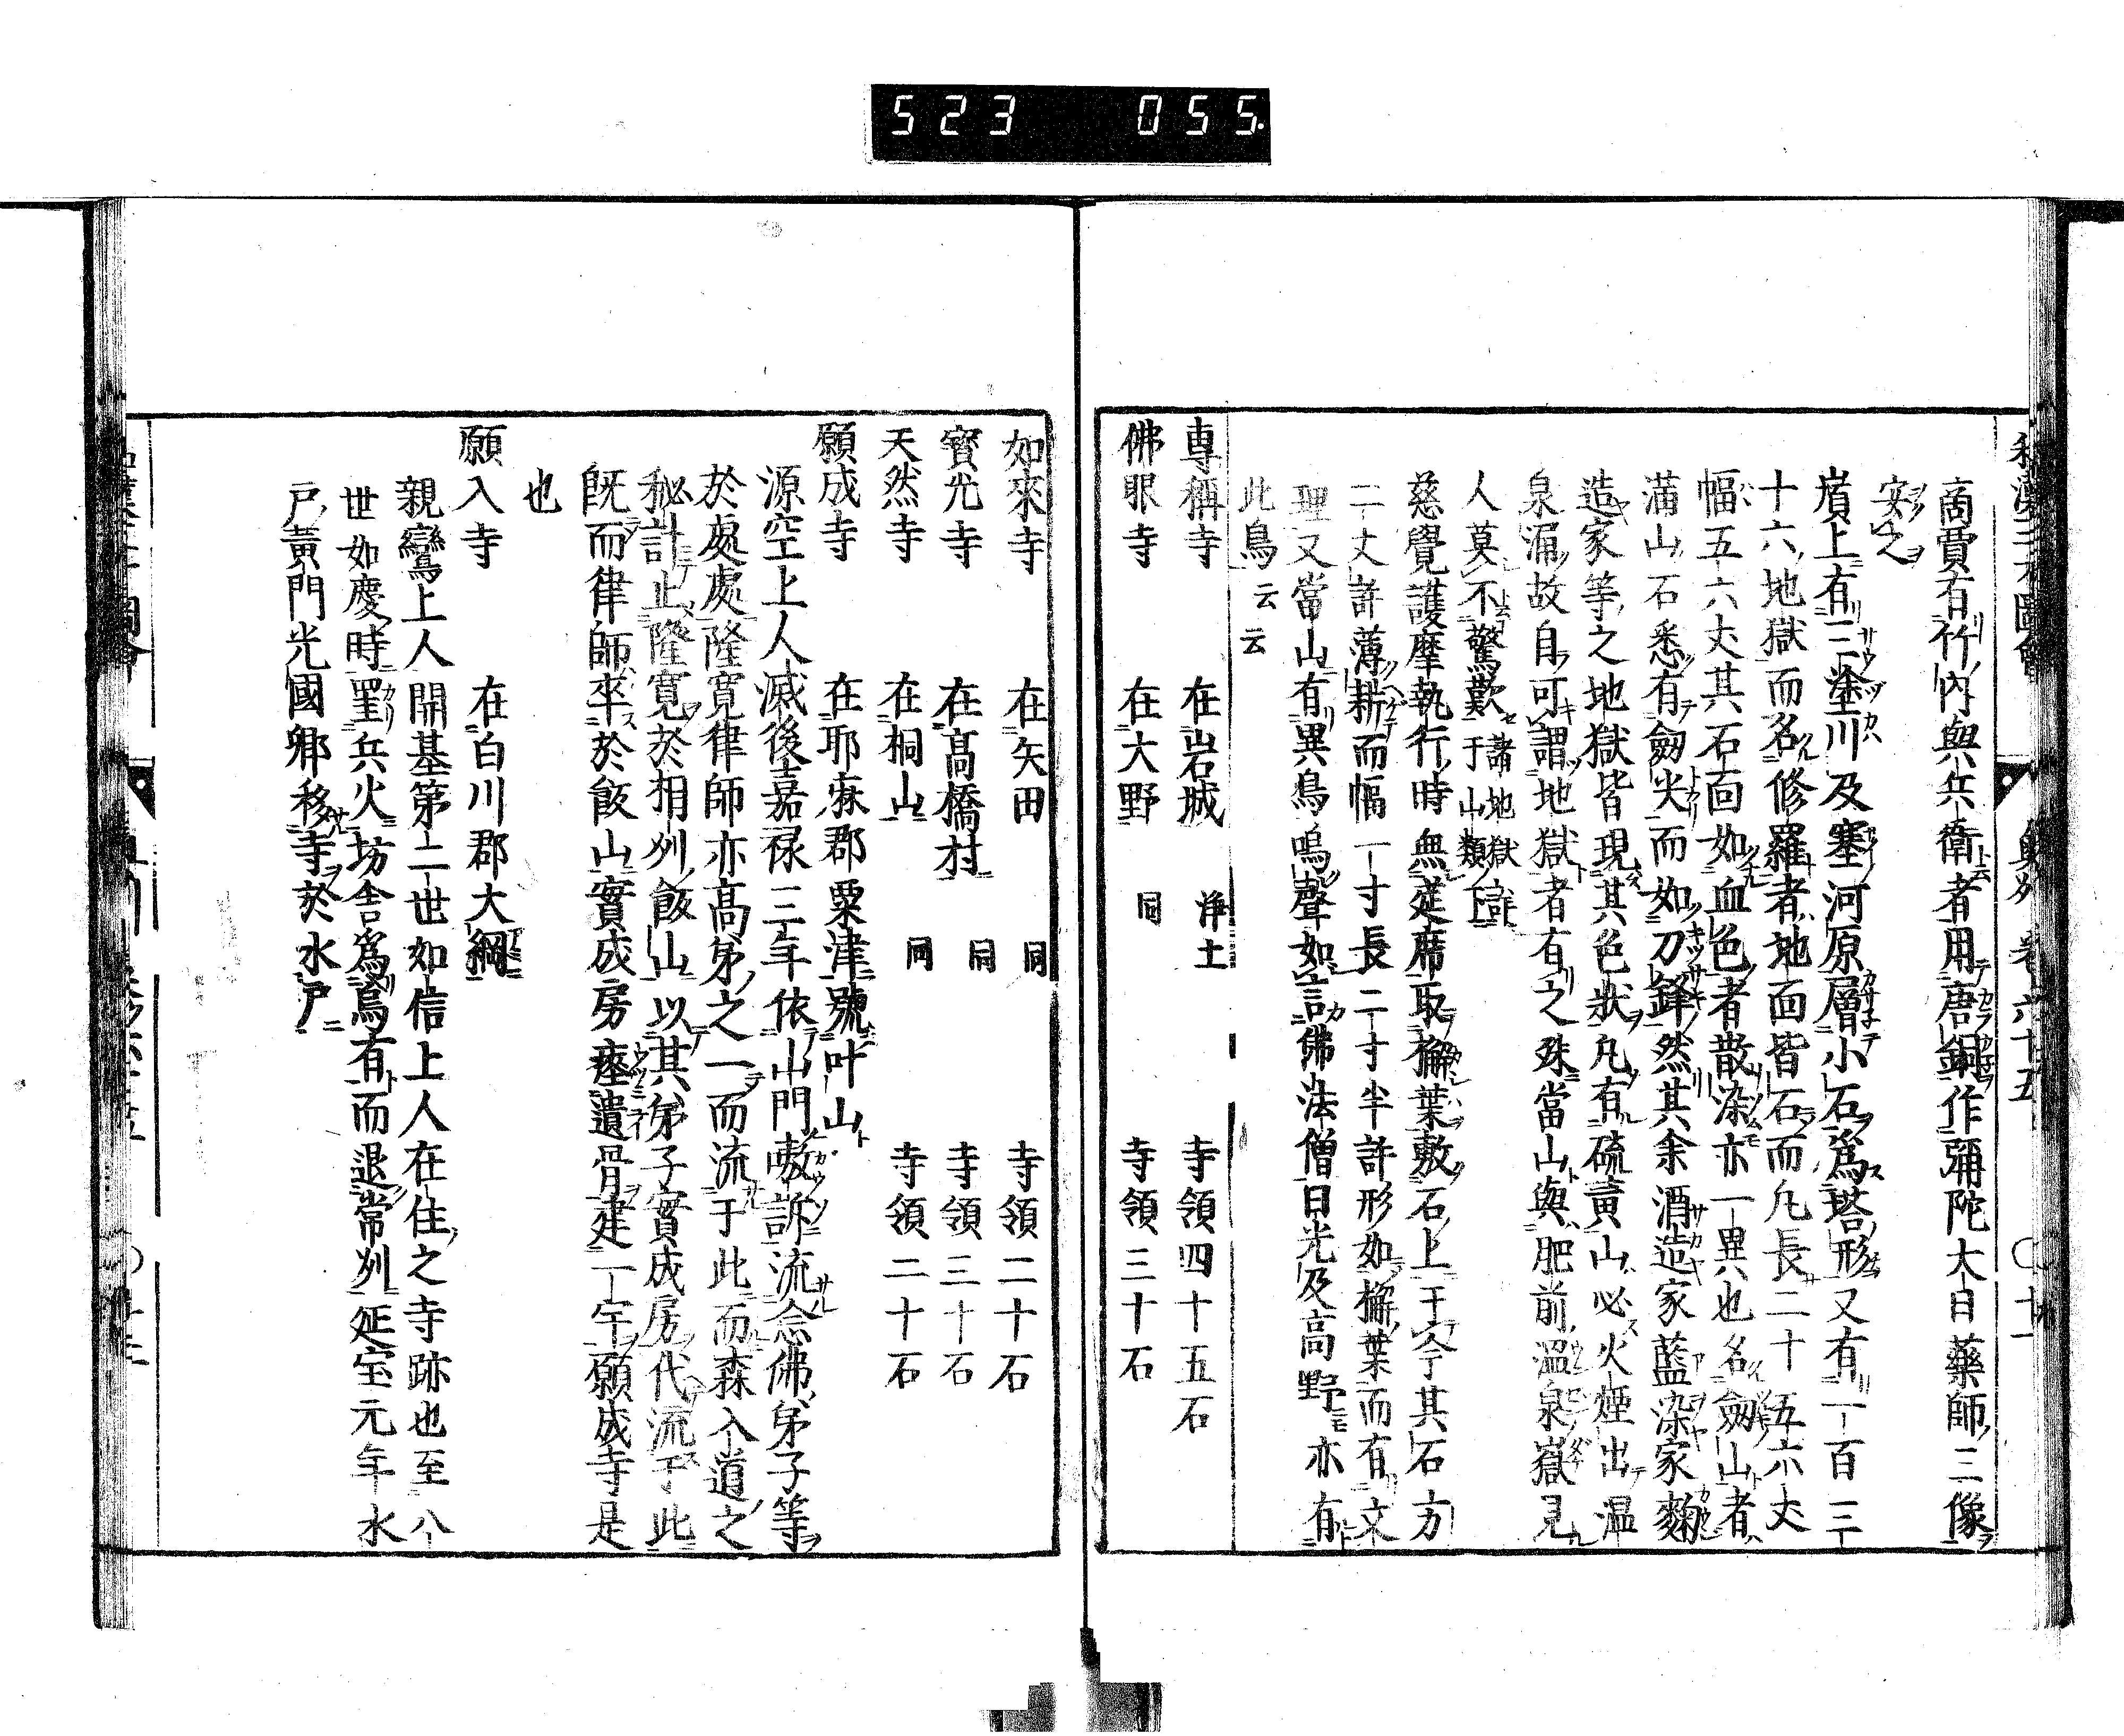 523 055.
和漢三才圖會 奥州 卷六十五 〇十一
商賈有竹内與兵衛者用唐銅作彌陀大日藥師三像
安之
嶺上有三塗川及塞河原層小石爲塔形又有一百三
十六地獄而名修羅者地面皆石而凡長二十五六丈
幅五六丈其石面如血色者散染亦一異也名劔山者
滿山石悉有劔尖而如刀鋒然其余酒造家藍染家麴
造家等之地獄皆現其色狀凡有硫黃山必火煙出温
泉涌故自可謂地獄者有之殊當山與肥前温泉嶽見
人莫不驚歎諸地獄詳于山類下
慈覺護摩執行時無莚席取槲葉敷石上于今其石方
二丈許薄耕而幅一寸長二寸半許形如槲葉而有文
理又當山有異鳥鳴聲如言佛法僧日光及高野亦有
此鳥云云
專稱寺 在岩城 淨土 寺領四十五石
佛眼寺 在大野 同 寺領三十石
如來寺 在矢田 同 寺領二十石
寳光寺 在髙橋村 同 寺領三十石
天然寺 在桐山 同 寺領二十石
願成寺 在耶麻郡粟津號叶山
源空上人滅後嘉禄三年依山門嗷訴流念佛弟子等
於處處隆寛律師亦髙弟之一而流于此而森入道之
秘計止隆寛於相刕飯山以其弟子實成房代流于此
旣而律師卒於飯山實成房瘞遺骨建一宇願成寺是
也
願入寺 在白川郡大綱
親鸞上人開基第二世如信上人在住之寺跡也至八
世如慶時罹兵火坊舎爲烏有而退常刕延宝元年水
戸黄門光國卿移寺於水戸